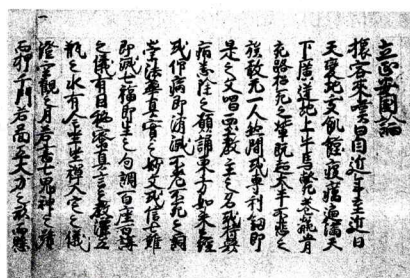 立正安国論
旅客来嘆曰自近年至近日
天変地夭飢饉疫癘遍満天
下廣迸地上牛馬斃巷骸骨
充路招死之輩既超大半不悲之
族敢无一人然間或専利釼即
是之文唱西土教主之名或持衆
病悉除之願誦東方如来之経
或仰病即消滅不老不死之詞
崇法華真實之妙文或信七難
即滅七福即生之句調百座百講
之儀有因秘密真言之教灑五
瓶之水有全坐禅入定之儀
澄空観之月若書七鬼神之号
而押千門若図五大力之形而懸